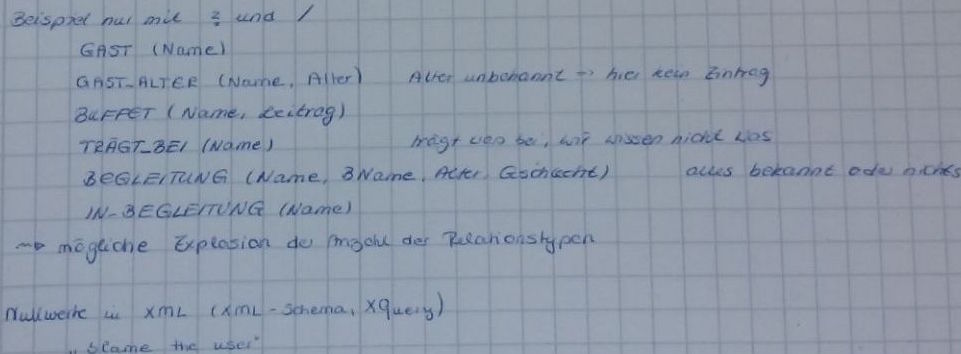 Beispiel nur mit ? und /
GAST (Name)
GAST_ALTER (Name, Alter) Alter unbekannt → hier kein Eintrag
BUFFET (Name, Beitrag)
TRÄGT_BEI (Name) trägt was bei, wir wissen nicht was
BEGLEITUNG (Name, BName, Alter, Geschlecht) alles bekannt oder nichts
IN_BEGLEITUNG (Name)
⇝ mögliche Explosion der Anzahl der Relationstypen
Nullwerte in XML (XML-Schema, XQuery)
"blame the user"